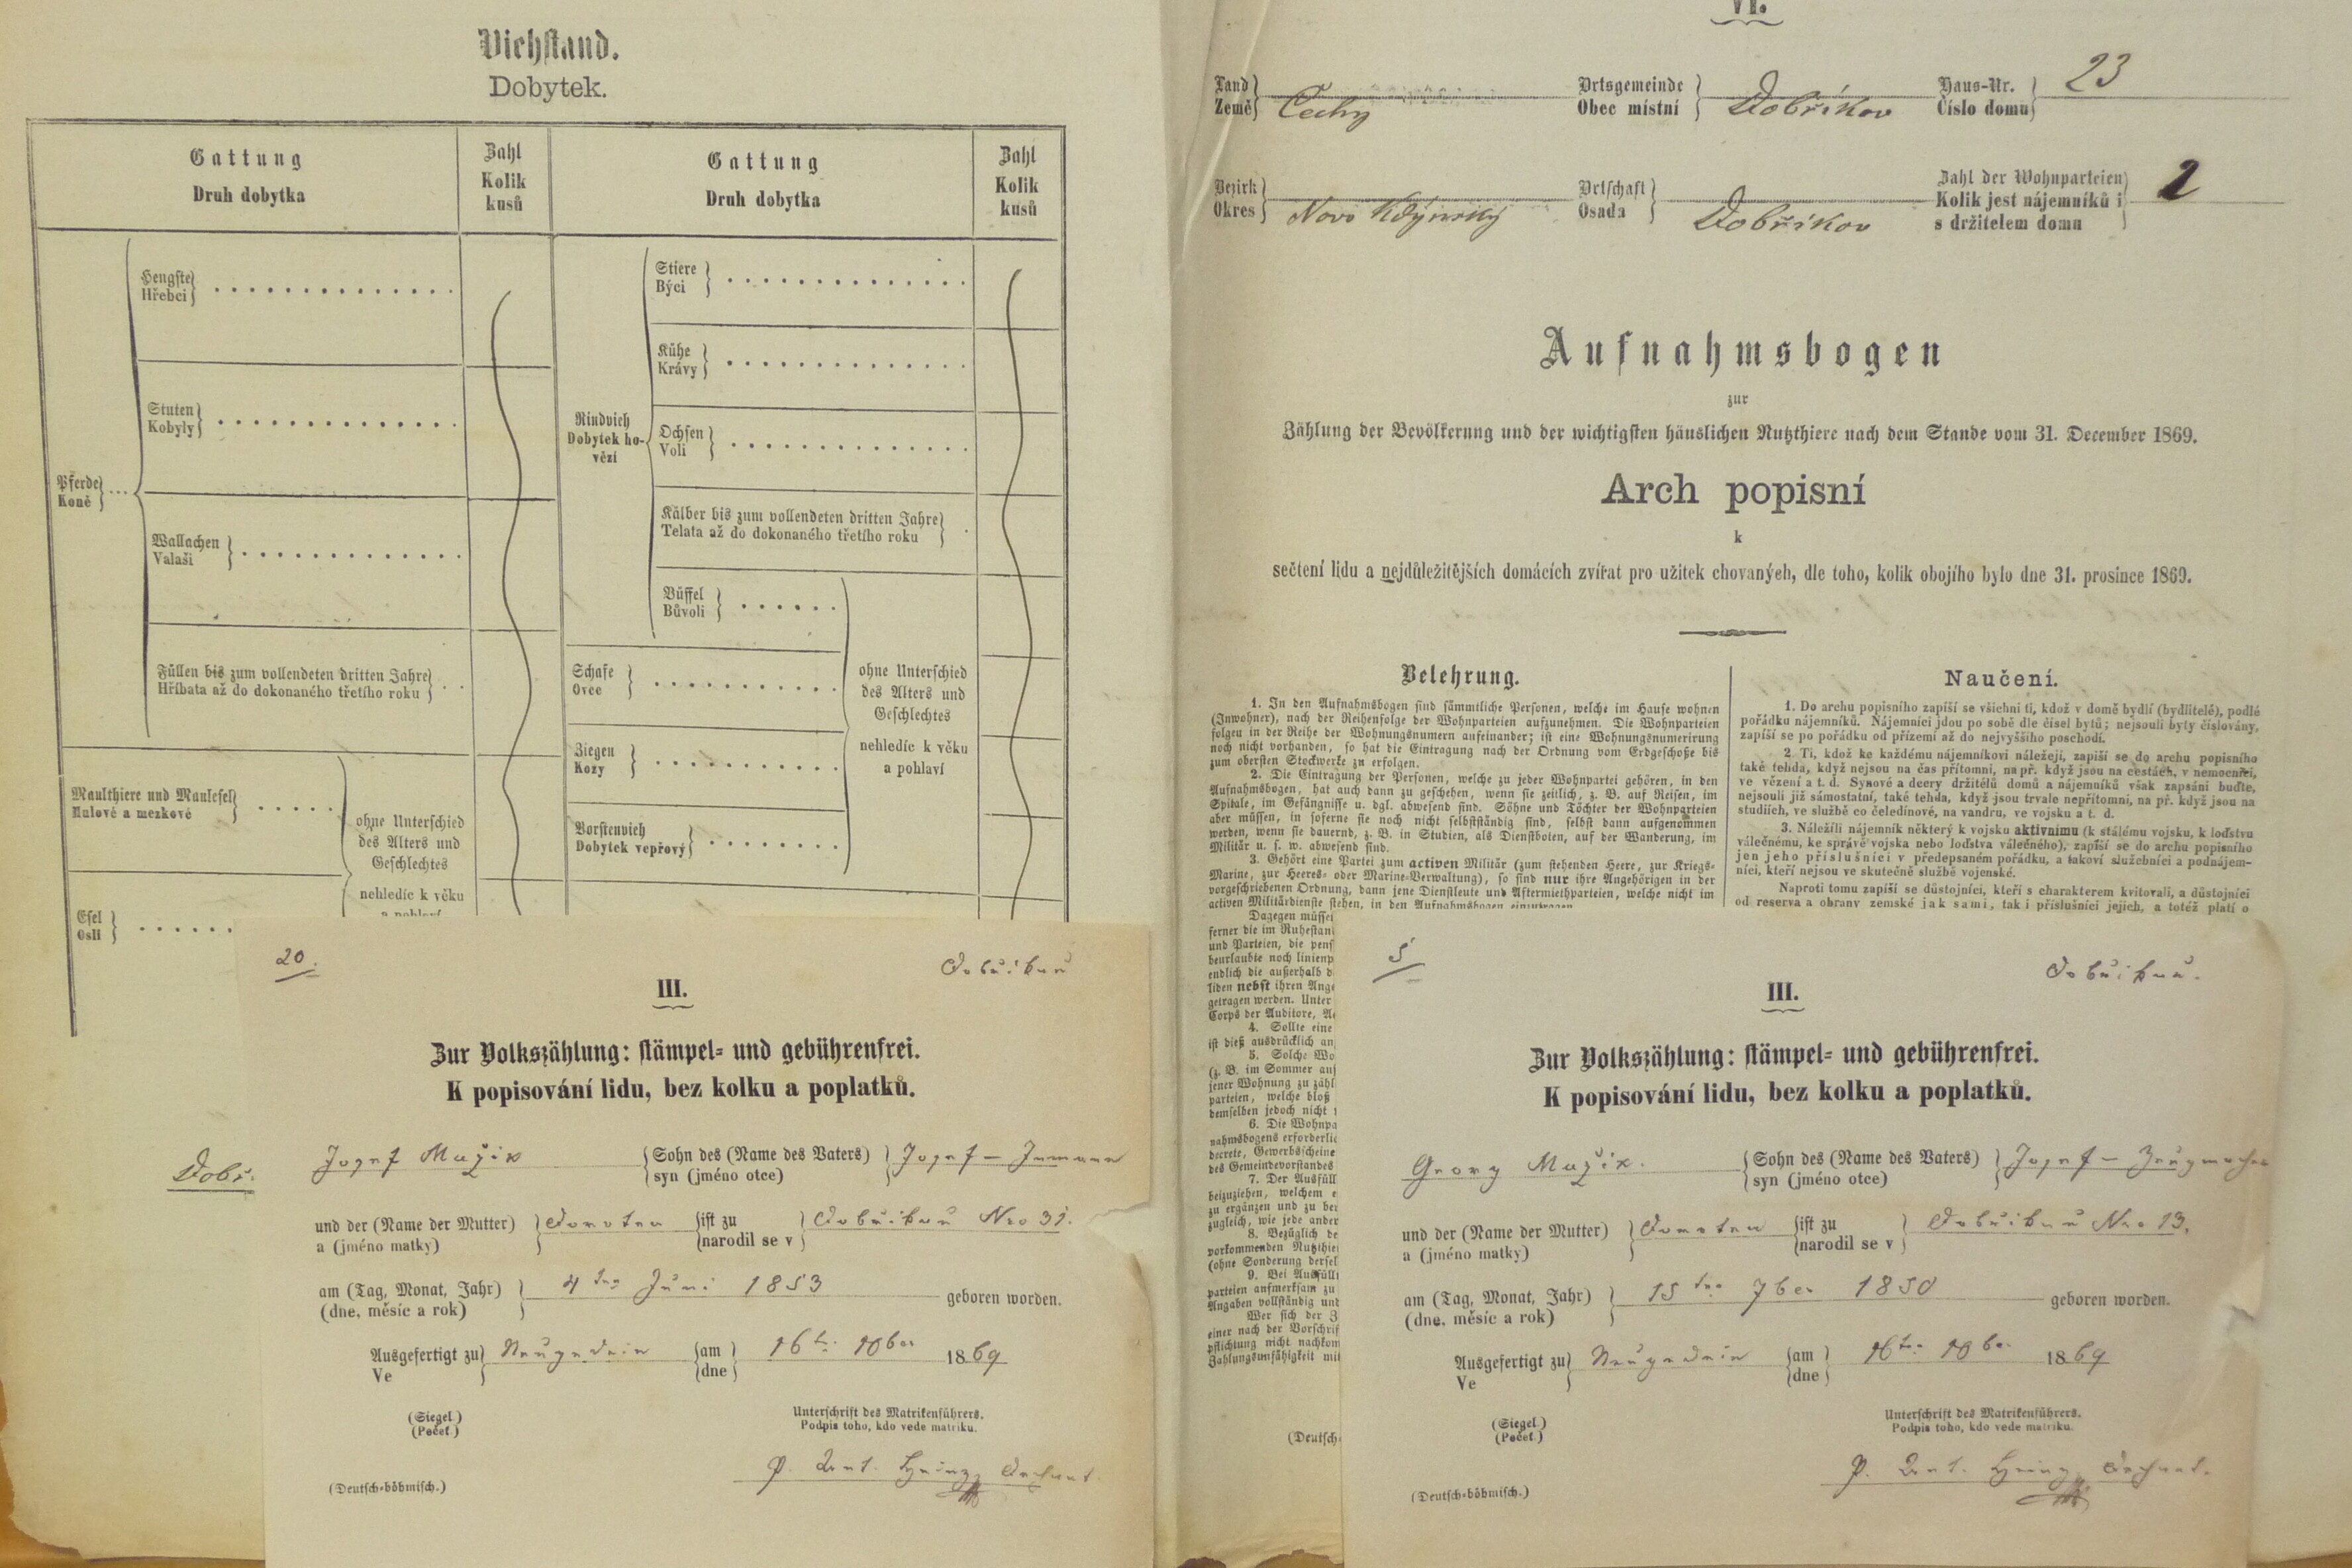 Viehstand.
Dobytek.
Gattung
Druh dobytka
Zahl
Kolik
kusů
Gattung
Druh dobytka
Zahl
Kolik
kusů
Pferde
Koně
Hengste
Hřebci
Stuten
Kobyly
Wallachen
Valaši
Füllen bis zum vollendeten dritten Jahre
Hříbata až do dokonaného třetího roku
Maulthiere und Maulesel
Mulové a mezkové
Esel
Osli
ohne Unterschied
des Alters und
Geschlechtes
nehledíc k věku
a pohlaví
Rindvieh
Dobytek ho-
vězí
Stiere
Býci
Kühe
Krávy
Ochsen
Voli
Kälber bis zum vollendeten dritten Jahre
Telata až do dokonaného třetího roku
Büffel
Bůvoli
Schafe
Ovce
Ziegen
Kozy
Borstenvieh
Dobytek vepřový
ohne Unterschied
des Alters und
Geschlechtes
nehledíc k věku
a pohlaví
Dobř.
VI.
Land
Země Čechy
Ortsgemeinde
Obec místní Dobříkov
Haus-Nr.
Číslo domu 23
Bezirk
Okres Novo Kdýnský
Ortschaft
Osada Dobříkov
Zahl der Wohnparteien
Kolik jest nájemníků i
s držitelem domu 2
Aufnahmsbogen
zur
Zählung der Bevölkerung und der wichtigsten häuslichen Nutzthiere nach dem Stande vom 31. December 1869.
Arch popisní
k
sečtení lidu a nejdůležitějších domácích zvířat pro užitek chovaných, dle toho, kolik obojího bylo dne 31. prosince 1869.
Belehrung.
1. In den Aufnahmsbogen sind sämmtliche Personen, welche im Hause wohnen
(Inwohner), nach der Reihenfolge der Wohnparteien aufzunehmen. Die Wohnparteien
folgen in der Reihe der Wohnungsnumern aufeinander; ist eine Wohnungsnumerirung
noch nicht vorhanden, so hat die Eintragung nach der Ordnung vom Erdgeschoße bis
zum obersten Stockwerke zu erfolgen.
2. Die Eintragung der Personen, welche zu jeder Wohnpartei gehören, in den
Aufnahmsbogen, hat auch dann zu geschehen, wenn sie zeitlich, z. B. auf Reisen, im
Spitale, im Gefängnisse u. dgl. abwesend sind. Söhne und Töchter der Wohnparteien
aber müssen, in soferne sie noch nicht selbstständig sind, selbst dann aufgenommen
werden, wenn sie dauernd, z. B. in Studien, als Dienstboten, auf der Wanderung, im
Militär u. s. w. abwesend sind.
3. Gehört eine Partei zum activen Militär (zum stehenden Heere, zur Kriegs-
Marine, zur Heeres- oder Marine-Verwaltung), so sind nur ihre Angehörigen in der
vorgeschriebenen Ordnung, dann jene Dienstleute und Aftermiethparteien, welche nicht im
activen Militärdienste stehen, in den Aufnahmsbogen einzutragen
Dagegen müsse
ferner die im Ruhestan
und Parteien, die pens
beurlaubte noch linienp
endlich die außerhalb d
liden nebst ihren Ange
getragen werden. Unter
Corps der Auditore, A
4. Sollte eine
ist dieß ausdrücklich an
5. Solche Wo
(z. B. im Sommer auf
jener Wohnung zu zähl
parteien, welche bloß
demselben jedoch nicht
6. Die Wohnpa
nahmsbogens erforderlic
decrete, Gewerbscheine
des Gemeindevorstandes
7. Der Ausfüll
beizuziehen, welchem e
zu ergänzen und zu ber
zugleich, wie jede ander
8. Bezüglich de
vorkommenden Nutzthie
(ohne Sonderung dersel
9. Bei Ausfüll
parteien aufmerksam zu
Angaben vollständig und
Wer sich der Z
einer nach der Vorschrif
pflichtung nicht nachkom
Zahlungsunfähigkeit mit
(Deutsch-
Naučení.
1. Do archu popisního zapíší se všichni ti, kdož v domě bydlí (bydlitelé), podlé
pořádku nájemníků. Nájemníci jdou po sobě dle čísel bytů; nejsouli byty číslovány,
zapíší se po pořádku od přízemí až do nejvyššího poschodí.
2 Ti, kdož ke každému nájemníkovi náležejí, zapíší se do archu popisního
také tehda, když nejsou na čas přítomni, na př. když jsou na cestách, v nemocnici,
ve vězení a t. d. Synové a dcery držitelů domů a nájemníků však zapsáni buďte,
nejsouli již sámostatní, také tehda, když jsou trvale nepřítomni, na př. když jsou na
studiích, ve službě co čeledínové, na vandru, ve vojsku a t. d.
3. Náležíli nájemník některý k vojsku aktivnímu (k stálému vojsku, k loďstvu
válečnému, ke správě vojska nebo loďstva válečného), zapíší se do archu popisního
jen jeho příslušníci v předepsaném pořádku, a takoví služebníci a podnájem-
níci, kteří nejsou ve skutečné službě vojenské.
Naproti tomu zapíší se důstojníci, kteří s charakterem kvitovali, a důstojníci
od reserva a obrany zemské jak sami, tak i příslušníci jejich, a totéž platí o
20. Dobřikau
III.
Zur Volkszählung: stämpel- und gebührenfrei.
K popisování lidu, bez kolku a poplatků.
Josef Mužik
Sohn des (Name des Vaters)
syn (jméno otce)
Josef - Inmann
und der (Name der Mutter)
a (jméno matky)
Dorotea
ist zu
narodil se v
Dobřikau Nro 31.
am (Tag, Monat, Jahr)
(dne, měsíc a rok)
4ten Juni 1853
geboren worden.
Ausgefertigt zu
Ve
Neugedein
am
dne
16t. 10ber 1869
(Siegel.)
(Pečeť.)
Unterschrift des Matrikenführers.
Podpis toho, kdo vede matriku.
(Deutsch-böhmisch.)
P. Heinz Dechant.
5 Dobřikau.
III.
Zur Volkszählung: stämpel- und gebührenfrei.
K popisování lidu, bez kolku a poplatků.
Georg Mužik.
Sohn des (Name des Vaters)
syn (jméno otce)
Josef - Zeugmacher
und der (Name der Mutter)
a (jméno matky)
Dorotea
ist zu
narodil se v
Dobřikau Nro 13.
am (Tag, Monat, Jahr)
(dne, měsíc a rok)
15ten 7ber 1850
geboren worden.
Ausgefertigt zu
Ve
Neugedein
am
dne
16ten 10ber 1869
(Siegel.)
(Pečeť.)
Unterschrift des Matrikenführers.
Podpis toho, kdo vede matriku.
(Deutsch-böhmisch.)
P. Heinz Dechant.